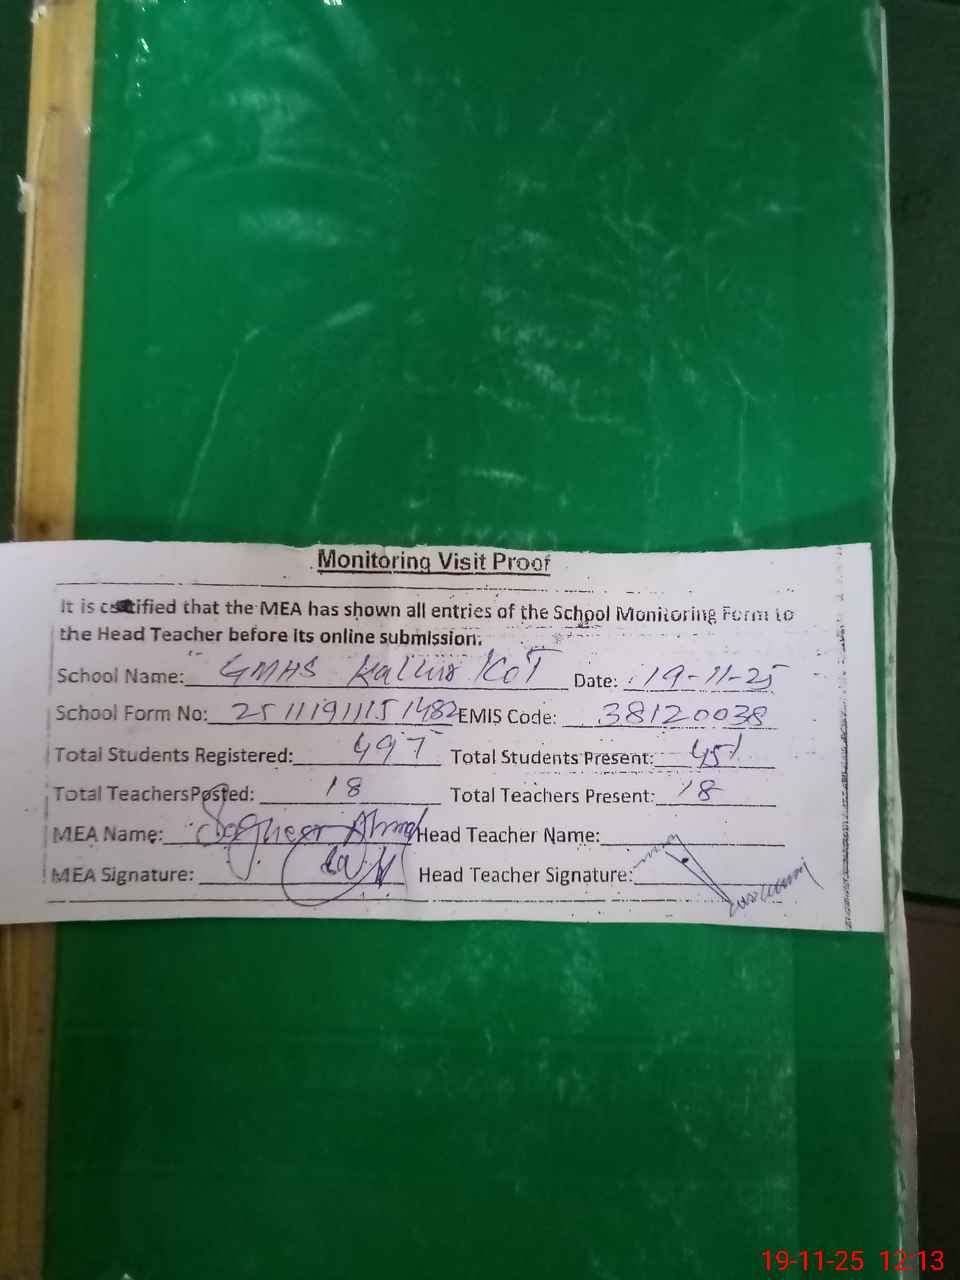 Monitoring Visit Proof
It is certified that the MEA has shown all entries of the School Monitoring Form to
the Head Teacher before its online submission.
School Name: GMHS Kallur Kot Date: 19-11-25
School Form No: 25111911151482 EMIS Code: 38120038
Total Students Registered: 497 Total Students Present: 451
Total Teachers Posted: 18 Total Teachers Present: 18
MEA Name: Sagheer Ahmad Head Teacher Name:
MEA Signature: Head Teacher Signature:
19-11-25 12:13